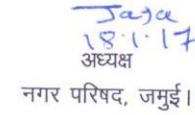 18.1.17
अध्यक्ष
नगर परिषद, जमुई।